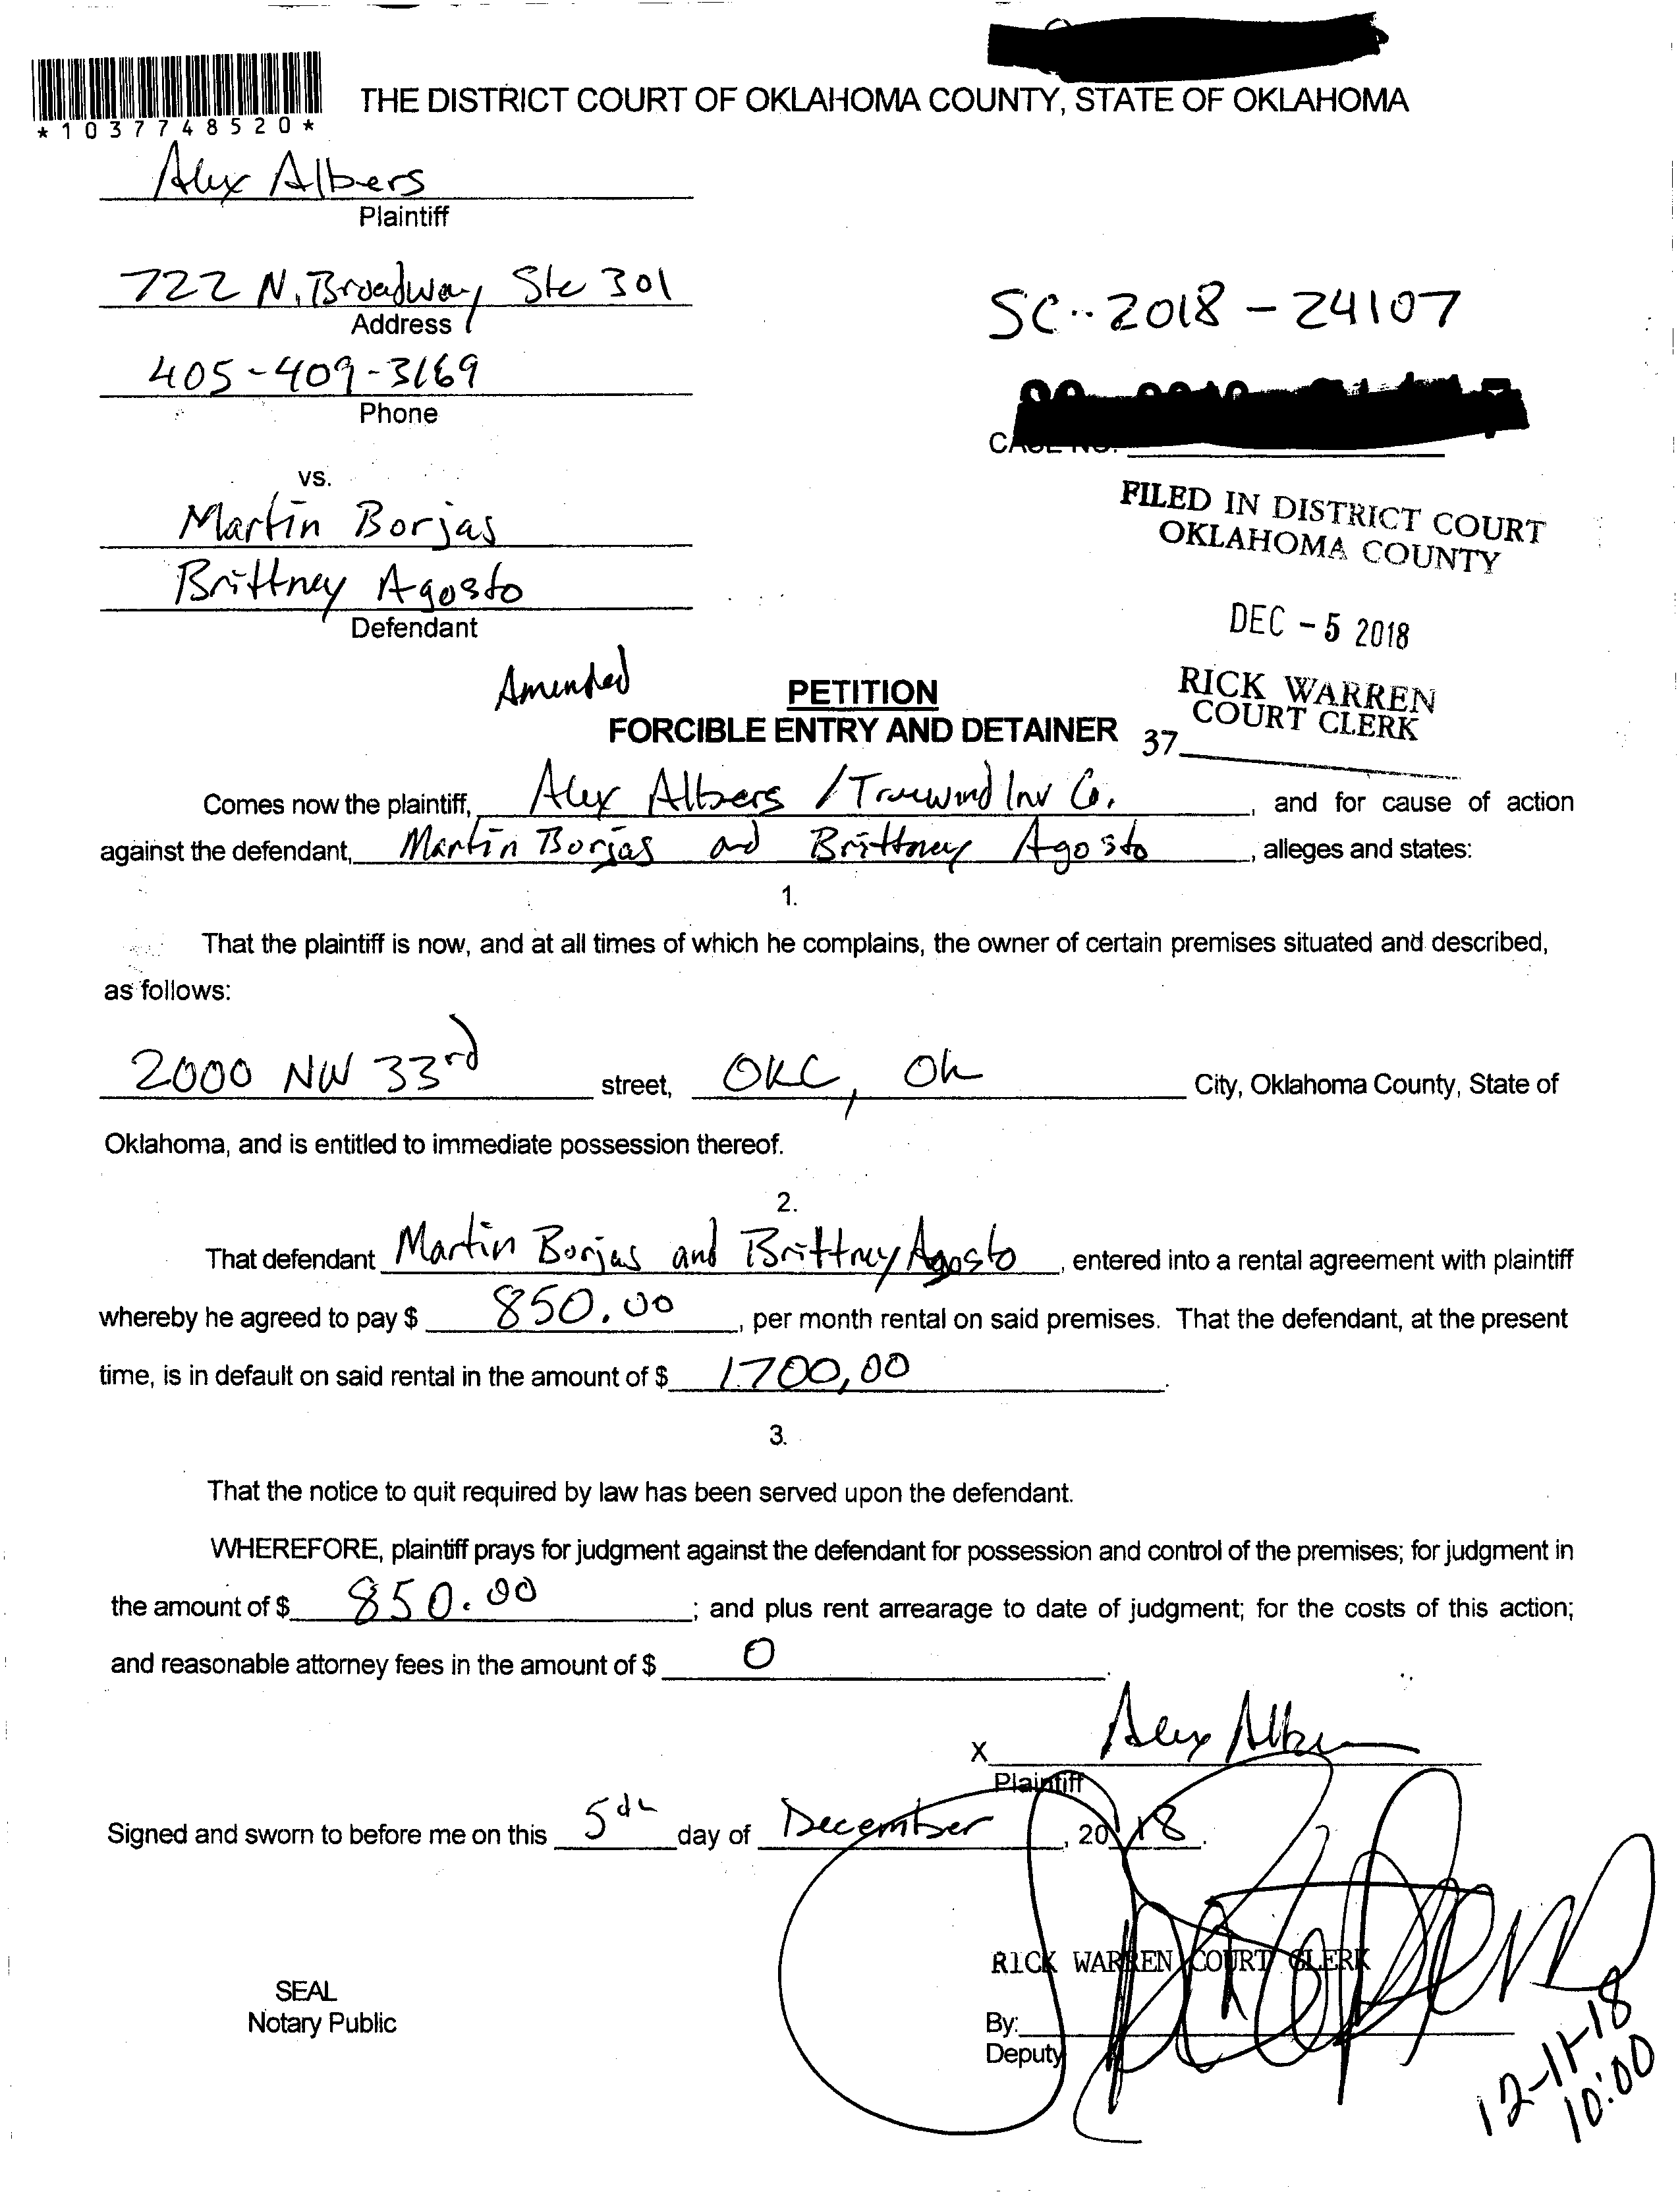 *1037748520*
THE DISTRICT COURT OF OKLAHOMA COUNTY, STATE OF OKLAHOMA
Alex Albers
Plaintiff
722 N. Broadway Ste 301
Address
405-409-3169
Phone
SC-2018-24107
CASE NO.
vs.
Martin Borjas
Brittney Agosto
Defendant
FILED IN DISTRICT COURT
OKLAHOMA COUNTY
DEC -5 2018
RICK WARREN
COURT CLERK
37
Amended
PETITION
FORCIBLE ENTRY AND DETAINER
Comes now the plaintiff, Alex Albers / Truewind Inv Co. , and for cause of action
against the defendant, Martin Borjas and Brittney Agosto , alleges and states:
1.
That the plaintiff is now, and at all times of which he complains, the owner of certain premises situated and described,
as follows:
2000 NW 33rd street, OKC, Ok City, Oklahoma County, State of
Oklahoma, and is entitled to immediate possession thereof.
2.
That defendant Martin Borjas and Brittney Agosto , entered into a rental agreement with plaintiff
whereby he agreed to pay $ 850.00 , per month rental on said premises. That the defendant, at the present
time, is in default on said rental in the amount of $ 1700,00 .
3.
That the notice to quit required by law has been served upon the defendant.
WHEREFORE, plaintiff prays for judgment against the defendant for possession and control of the premises; for judgment in
the amount of $ 850.00 ; and plus rent arrearage to date of judgment; for the costs of this action;
and reasonable attorney fees in the amount of $ 0 .
X Alex Albers
Plaintiff
Signed and sworn to before me on this 5th day of December , 2018.
RICK WARREN COURT CLERK
SEAL
Notary Public
By:
Deputy
12-11-18
10:00